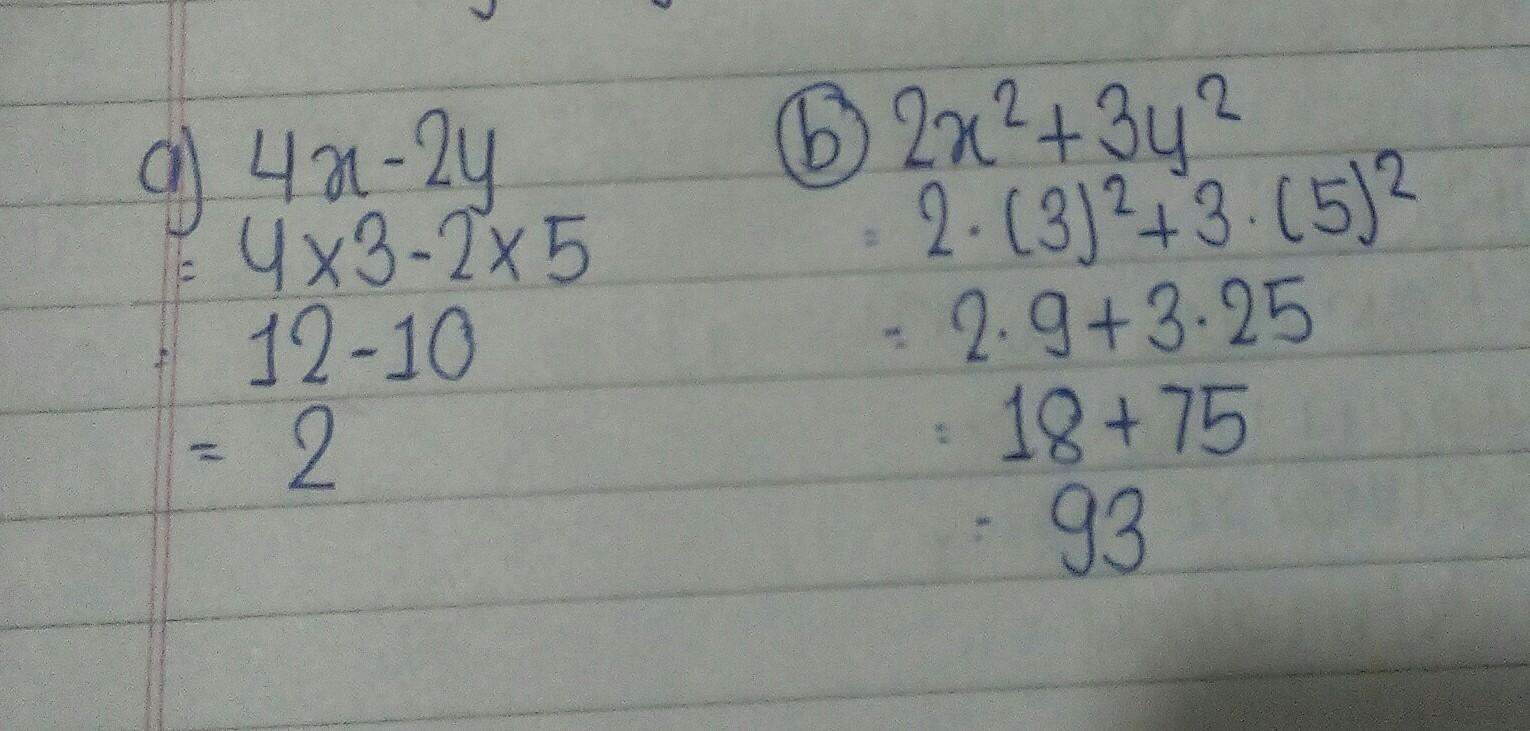 a) 4x-2y
= 4×3-2×5
= 12-10
= 2
b 2x²+3y²
= 2·(3)²+3·(5)²
= 2·9+3·25
= 18+75
= 93